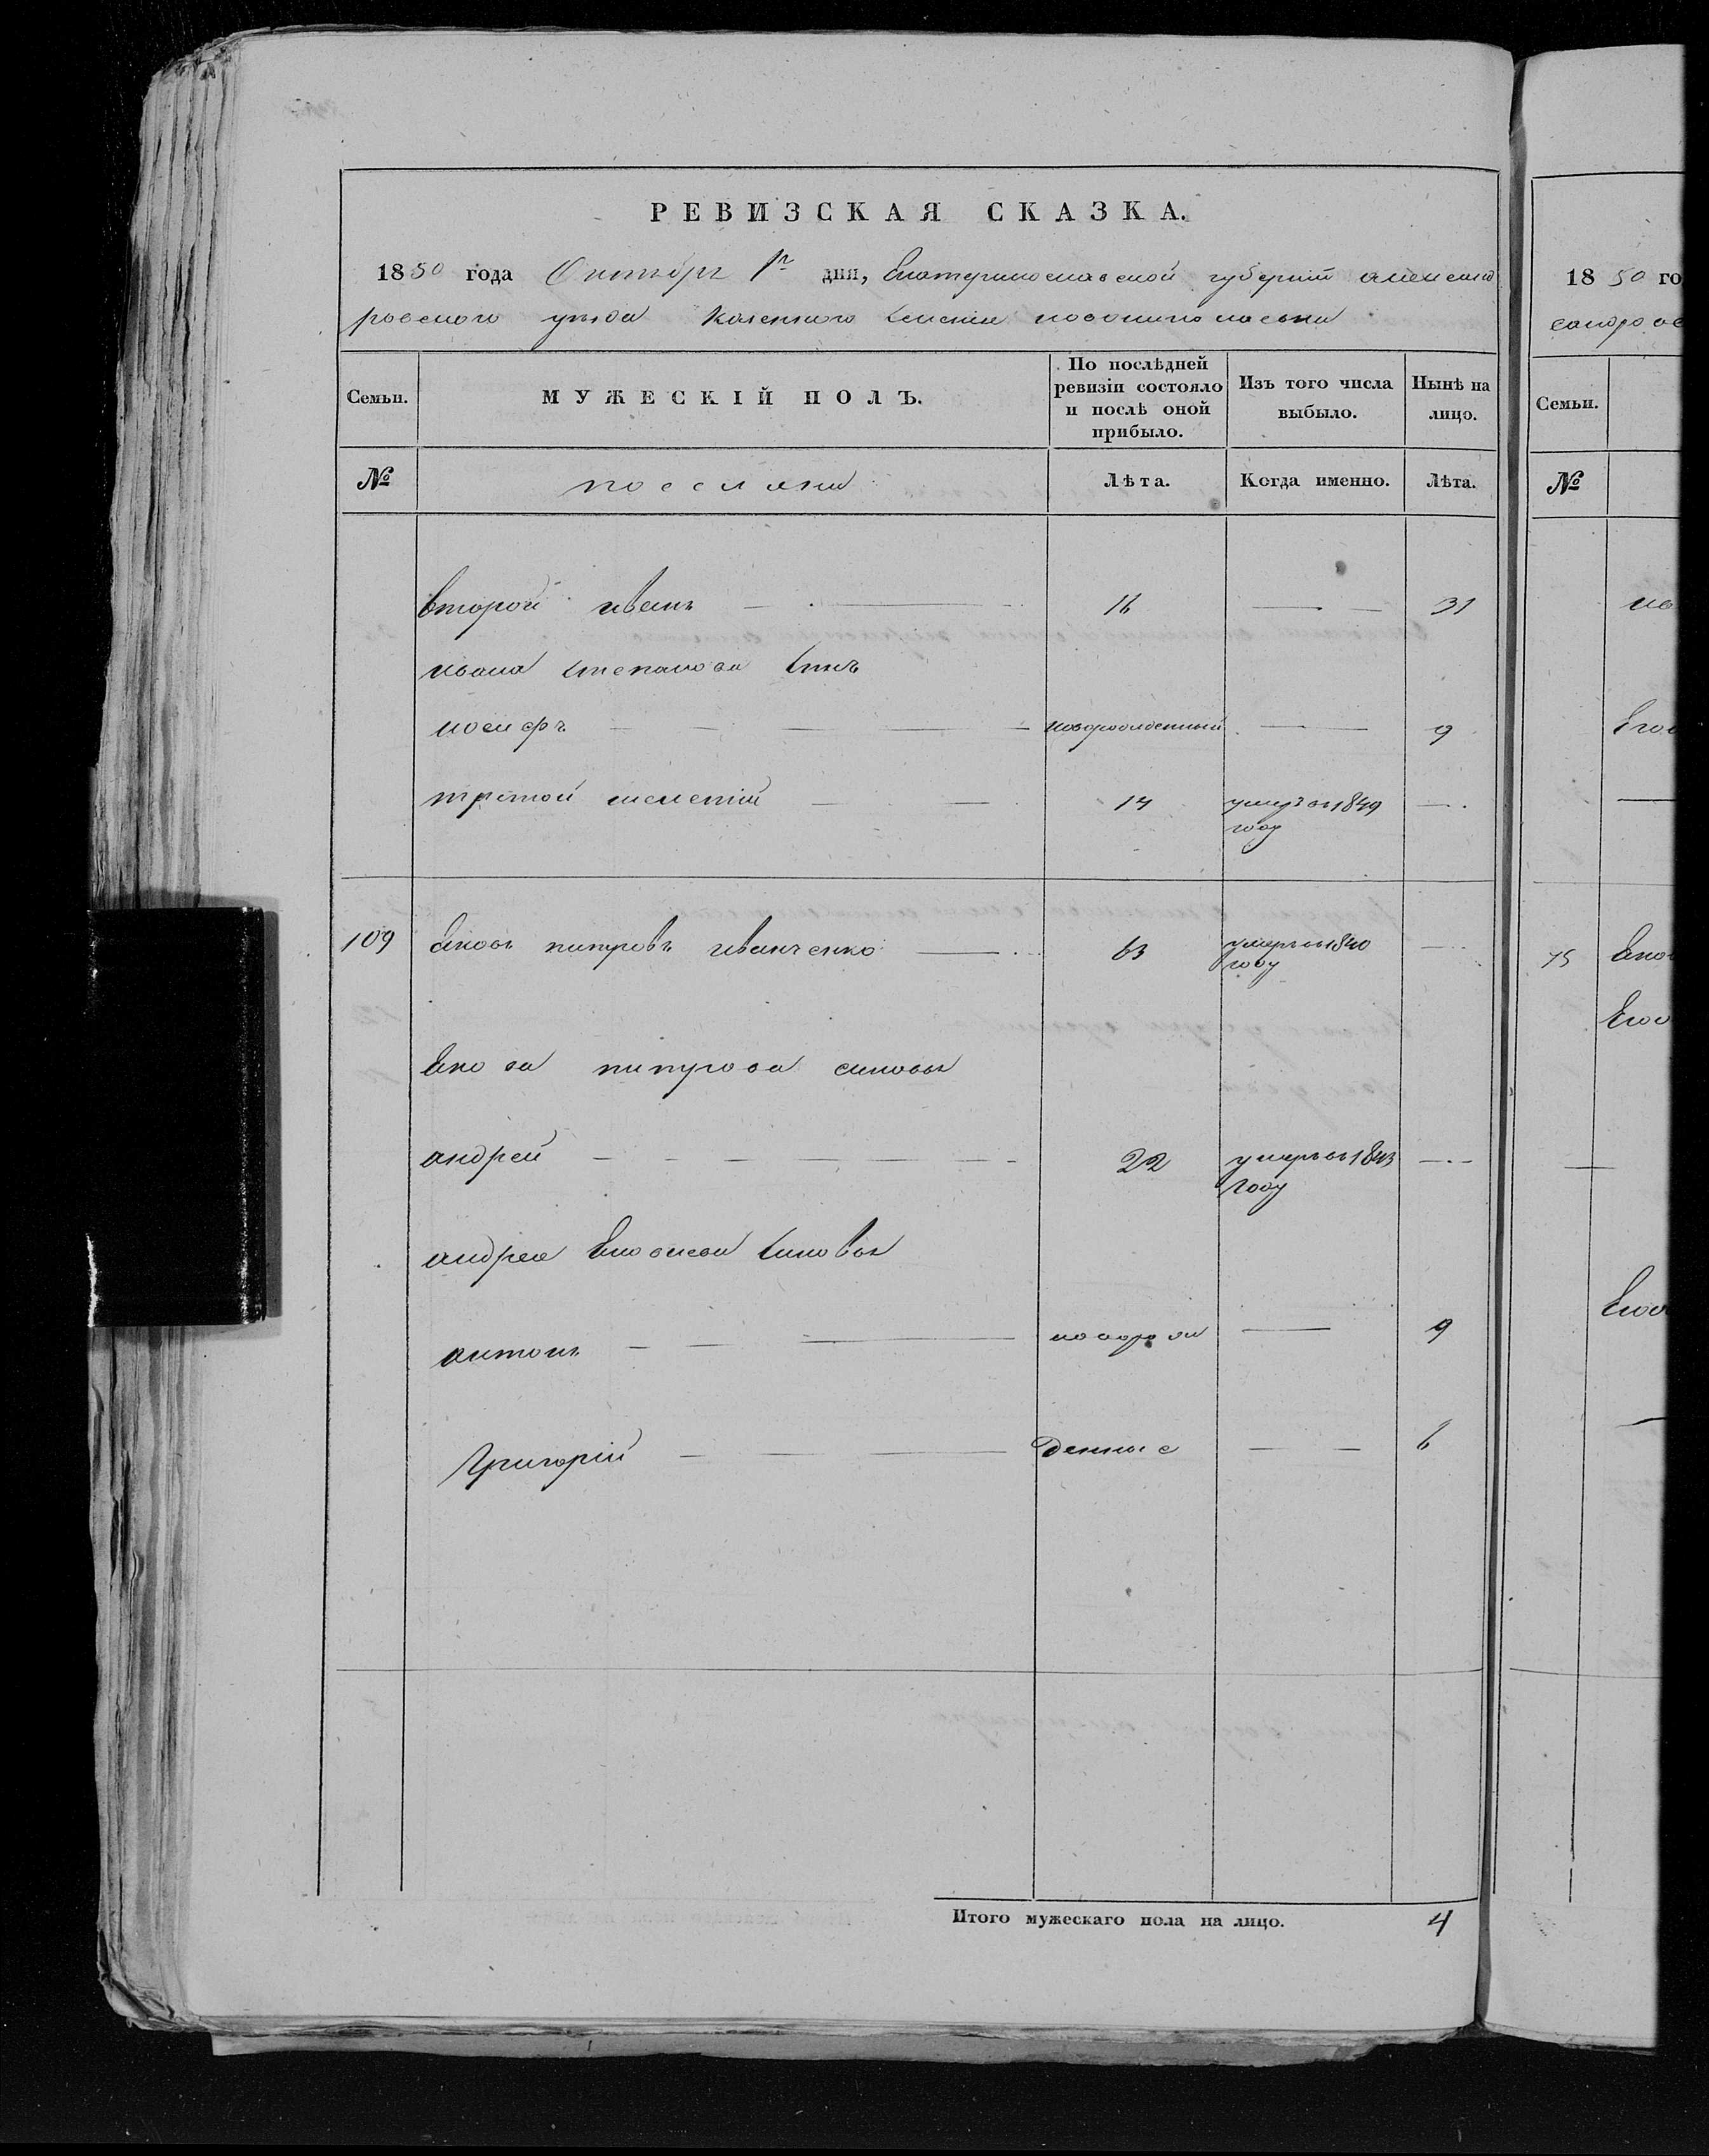 РЕВИЗСКАЯ СКАЗКА.
1850 года Октября 1го дня, Екатеринославской губернии александ
ровского уезда Казенного Селения новониколаевки
Семьи. МУЖЕСКІЙ ПОЛЪ. По послѣдней ревизіи состояло и послѣ оной прибыло. Изъ того числа выбыло. Нынѣ на лицо.
№ поселяни Лѣта. Когда именно. Лѣта.
второй иванъ 16 31
ивана степанова сынъ
иосифъ новорожденный 9
третой 14 умеръ въ 1849
году
109 Яковъ питровъ иванченко 63 умеръ въ 1840
году
Якова питрова сыновья
андрей 22 умеръ въ 1843
году
андрея Яковлева сыновья
антонъ новорож 9
Григорій денные 6
Итого мужескаго пола на лицо. 4
18 50 го
сандров
Семьи.
№
75 Яков